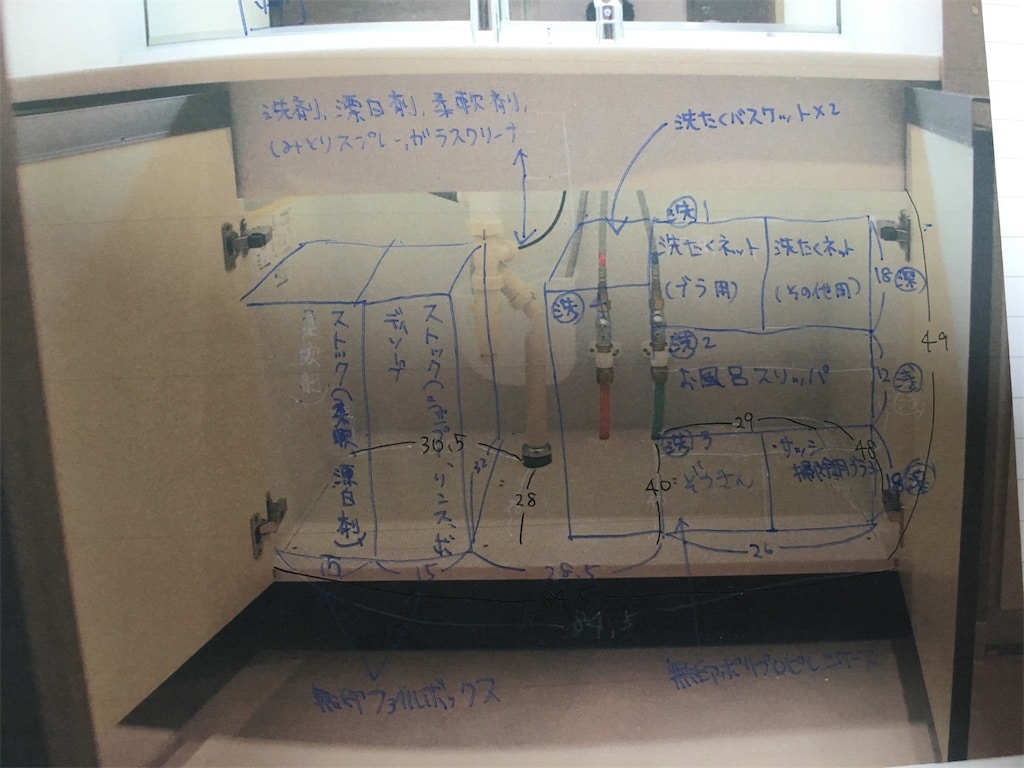 洗剤, 漂白剤, 柔軟剤,
しみとりスプレー, ガラスクリーナ
洗たくバスケット×2
洗1
洗たくネット
(ブラ用)
洗たくネット
(その他用)
18 深
49
洗4
洗2
お風呂スリッパ
12
ストック(柔軟 漂白剤)
ストック(
リンス、ボ
ディソープ
30.5
32
28
40
29
48
洗3
ぞうさん
・サッシ
掃除用ブラシ
18 深
15
15
28.5
26
84.5
84.5
無印ファイルボックス
無印ポリプロピレンケース